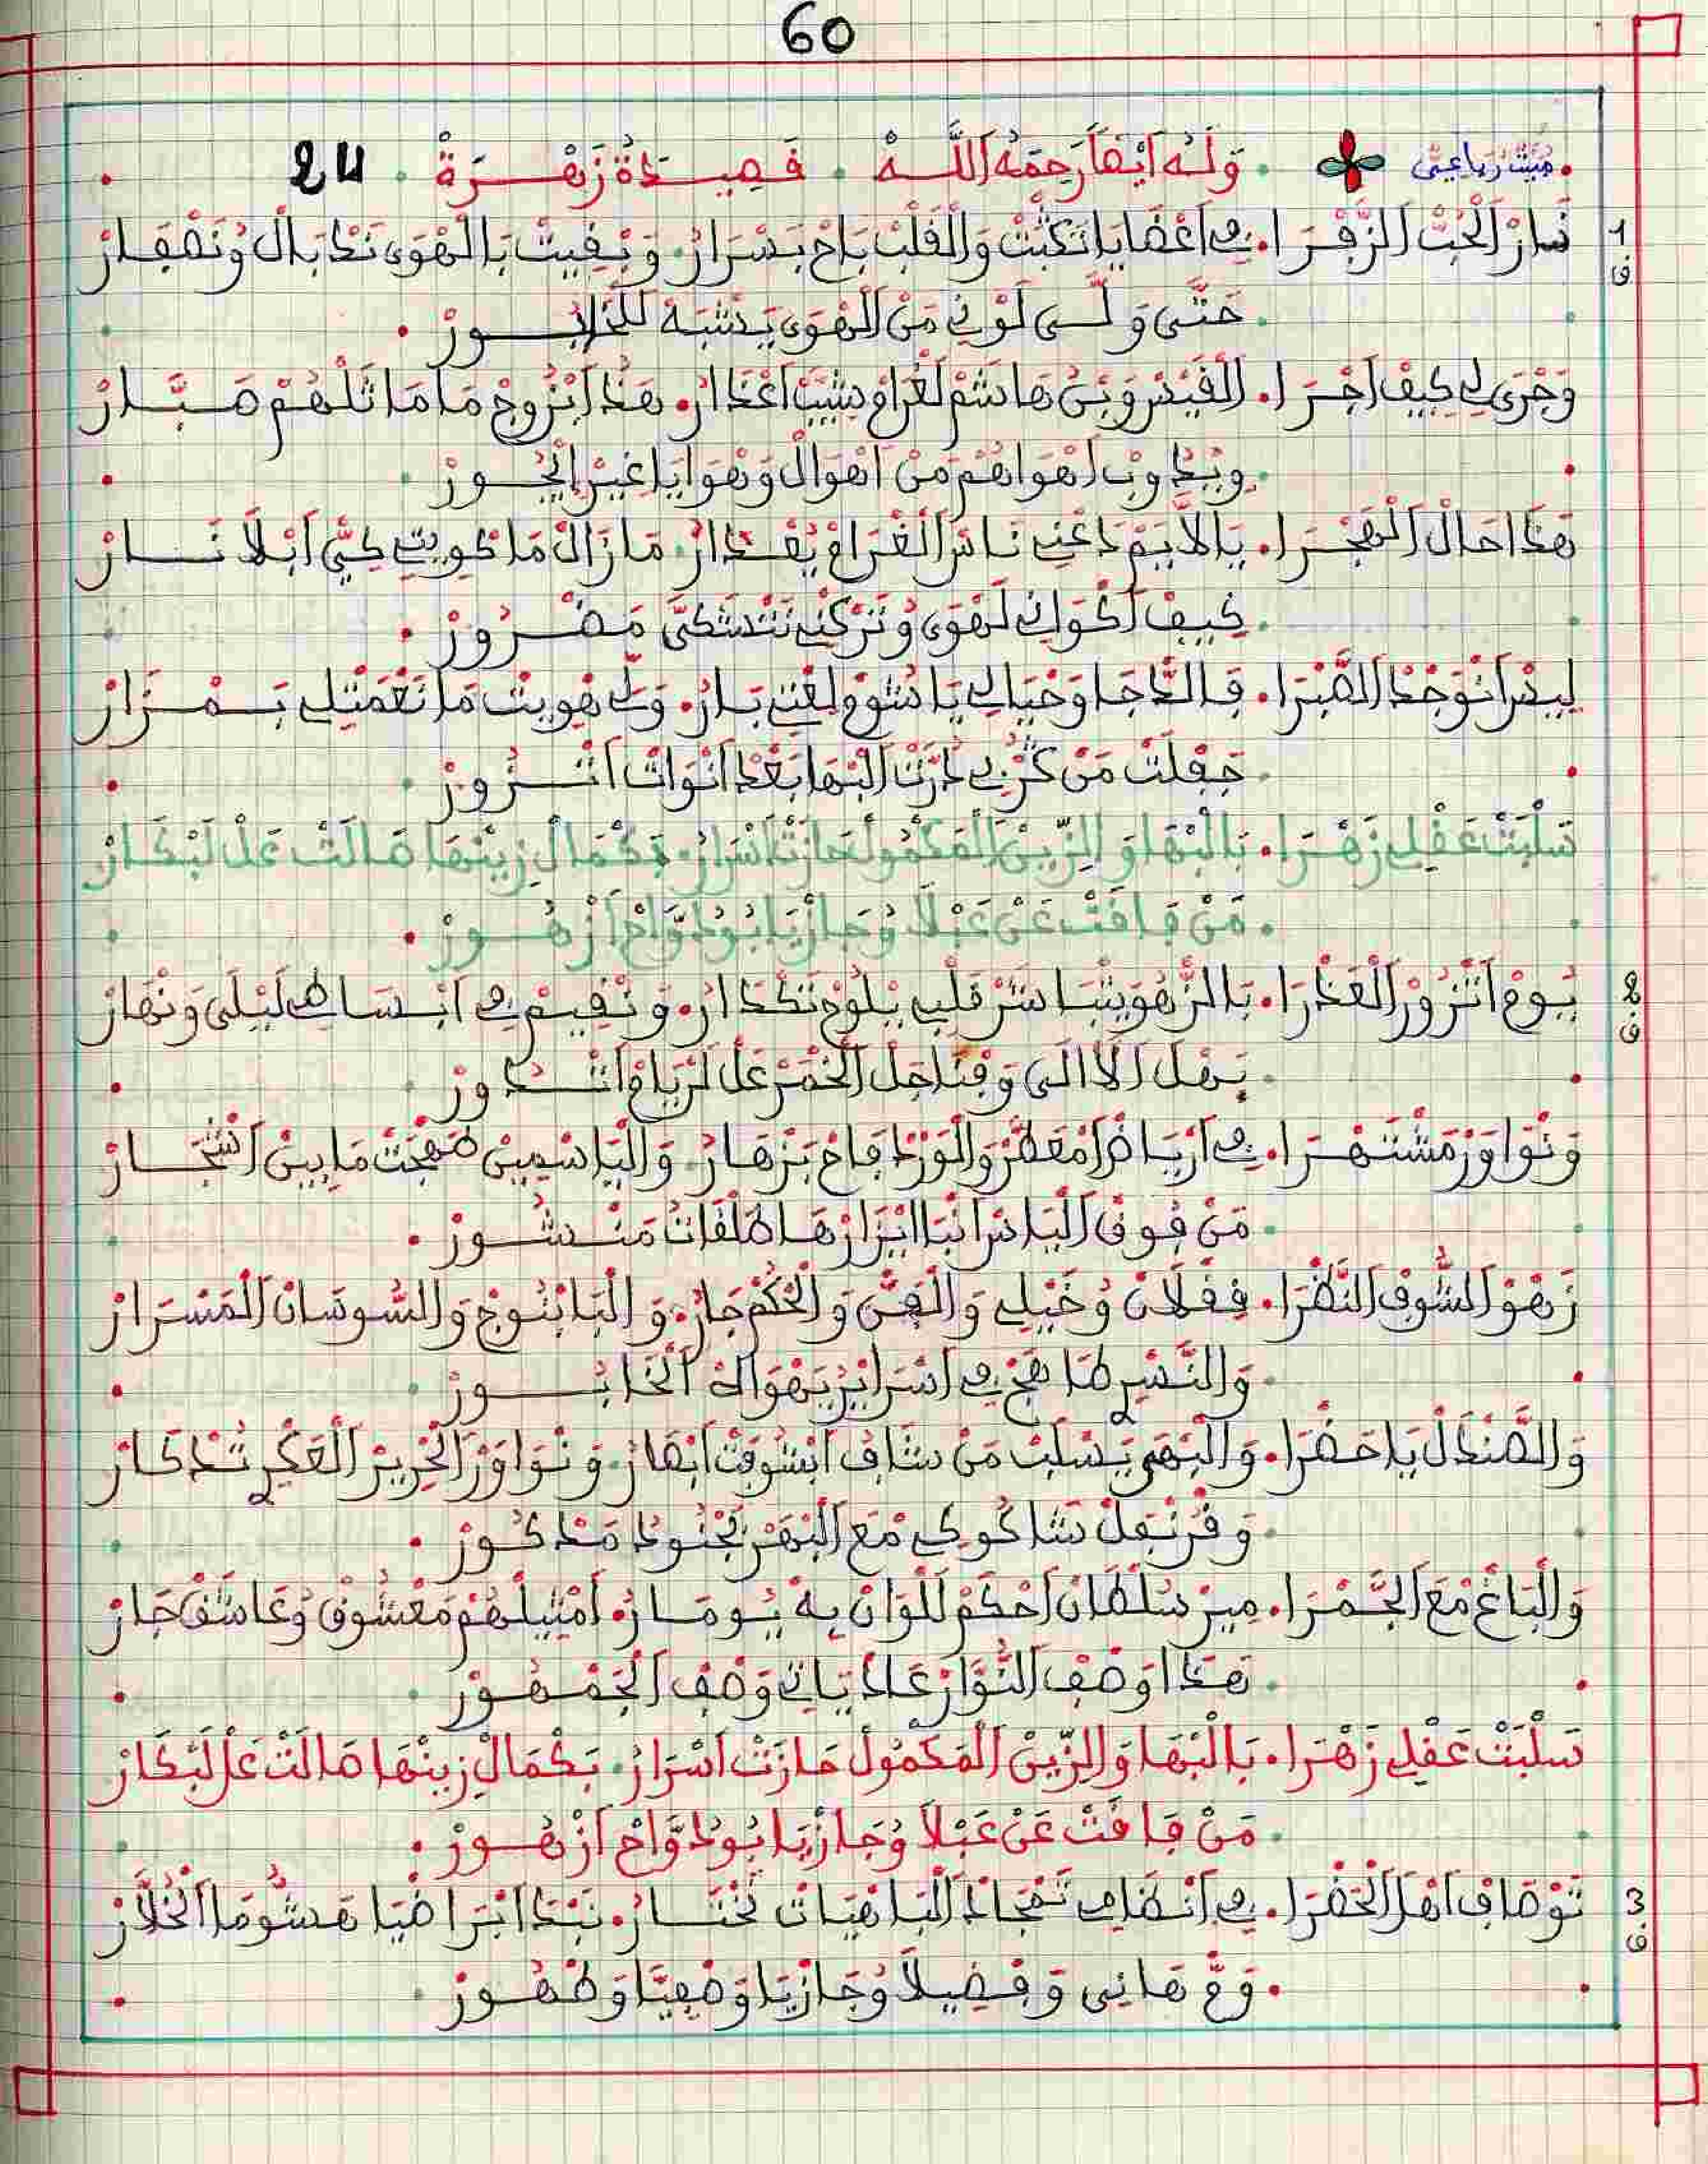 60
مبيت رباعي . وَلَهُ أَيْضاً رَحِمَهُ اللَّه . قَصِيدَةُ زَهْرَةْ . 24
1 نَارْ الْحُبْ الزَّفْرَا . فِي اعْضَايَا تكبت وَالْقَلْبْ بَاحْ بَسْرَارُ . وَبْقِيتْ بَالْهْوَى نَكْبَالْ وُنَصْفَارْ
ق . حَتَّى وَلَّى لَوْنِي مَنْ الْهْوَى يَشْبَهْ لَلْخَابُورْ .
وَجْرَى لِي كِيفْ اجْرَا . الْقَيْسْ وَبْنْ هَاشَمْ لَغْرَامْ شيبْ اعْدَارُ . هَذَا ابْرُوجْ مَا مَاثَلْهُمْ صَبَّارْ
. وِيْدُوبْ اهْوَاهُمْ مَنْ اهْوَالْ وَهْوَايَا غِيرْ ابْحُورْ .
هَذَا حَالْ الْهَجْرَا . يَا لاَّيَمْ دَعْنِي نَاسْ الْغْرَامْ يُعْدَارُ . مَا زَالْ مَا كْوِيتِي كِيِّي ابْلاَ نَارْ
. كِيفْ اكْوَانِي لَهْوَى وُتَرْكْنِي نَتْشَكَّى مَضْرُورْ .
لِيسْ انْوَجْدْ الصَّبْرَا . فَالدَّاجَا وَخْيَالِي يَا شُومْ لَعْتِي بَارُ . وَلِّي هْوِيتْ مَا نَعْمَتْلِي بَمْزَارْ
. جَفْلَتْ مَنْ كَنْزِي دُرَّتْ الْبْهَا بَعْدْ انْوَاتْ اتْزُورْ .
سَلْبَتْ عَقْلِي زَهْرَا . بَالْبْهَا وَالزِّينْ الْمَكْمُولْ حَازَتْ اسْرَارُ . بَكْمَالْ زِينْهَا صَالَتْ عَلْ لَبْكَارْ
. مَنْ فَاقَتْ عَنْ عَبْلاَ وُجَازْيَا بُودَوَّاحْ ازْهُورْ .
2 يُومْ اتْزُورْ الْعَدْرَا . بَالزّْهُو يَبْشَاشَرْ قَلْبِي يْلُوحْ تَكْدَارُ . وَنْقِيمْ فِي ابْسَاطِي لَيْلَى وَنْهَارْ
ق . بَهْلْ الْآلَى وَقْنَاجَلْ الْخْمَرْ عَلْ لَرْيَامْ اتْدُورْ .
وَنْوَاوَرْ مَشْتَهْرَا . فِي ارْيَاضْ امْعَطَّرْ وَالْوَرْدْ فَاحْ بَزْهَارُ . وَالْيَاسْمِينْ صَهْجَتْ مَا بِينْ اشْجَارْ
. مَنْ فُوقْ الْيَاسْ انْبَا ايْزَارْهَا طَلْقَاتُ مَنْشُورْ .
زَهْوْ الشُّوفْ النَّظْرَا . فقْلَانْ وُخَيْلِي وَالْقَنْ وَالْحْكَمْ جَارُ . وَالْبَابْنُوجْ وَالسُّوسَانْ الْمَسْرَارْ
. وَالنَّسْرِي طَاهَجْ فِي اسْرَايْرُ يَهْوَاهْ الْخَابُورْ .
وَالصَّنْدَلْ يَا حَضْرَا . وَالْبَهْمِي يَسْلَبْ مَنْ شَافْ ابْشُوفْتْ ابْصَارُ . وَنْوَاوَرْ الْحْرِيرْ الْعَكْرِي تَدْكَارْ
. وَقْرُنْفَلْ شَاكُوكِي مْعَ الْبْهَرْ بَجْنُودُ مَدْكُورْ .
وَالْبَاغْ مْعَ الْجَّمْرَا . مِيرْ سُلْطَانْ احْكَمْ لَلْوَانْ بِهْ يُومَارُ . امْثِيلْهُمْ مَعْشُوقْ وُعَاشَقْ جَارْ
. هَذَا وَصْفْ النُّوَّارْ عَادْ يَاتِي وَصْفْ الْجَمْهُورْ .
سَلْبَتْ عَقْلِي زَهْرَا . بَالْبْهَا وَالزِّينْ الْمَكْمُولْ حَازَتْ اسْرَارُ . بَكْمَالْ زِينْهَا صَالَتْ عَلْ لَبْكَارْ
. مَنْ فَاقَتْ عَنْ عَبْلاَ وُجَازْيَا بُودَوَّاحْ ازْهُورْ .
3 تَوْصَافْ اهْلْ الْحَضْرَا . فِي انْضَامِي تَهْجَادْ الْبَاهْيَاتْ تَخْتَارُ . نَبْدَا ابْرَاضْيَا هَشُّومَا الْخْلَّارْ
ق . وَمّْ هَانِي وَفْضِيلاَ وُجَازْيَا وَصْفِيَّا وَطْهُورْ .